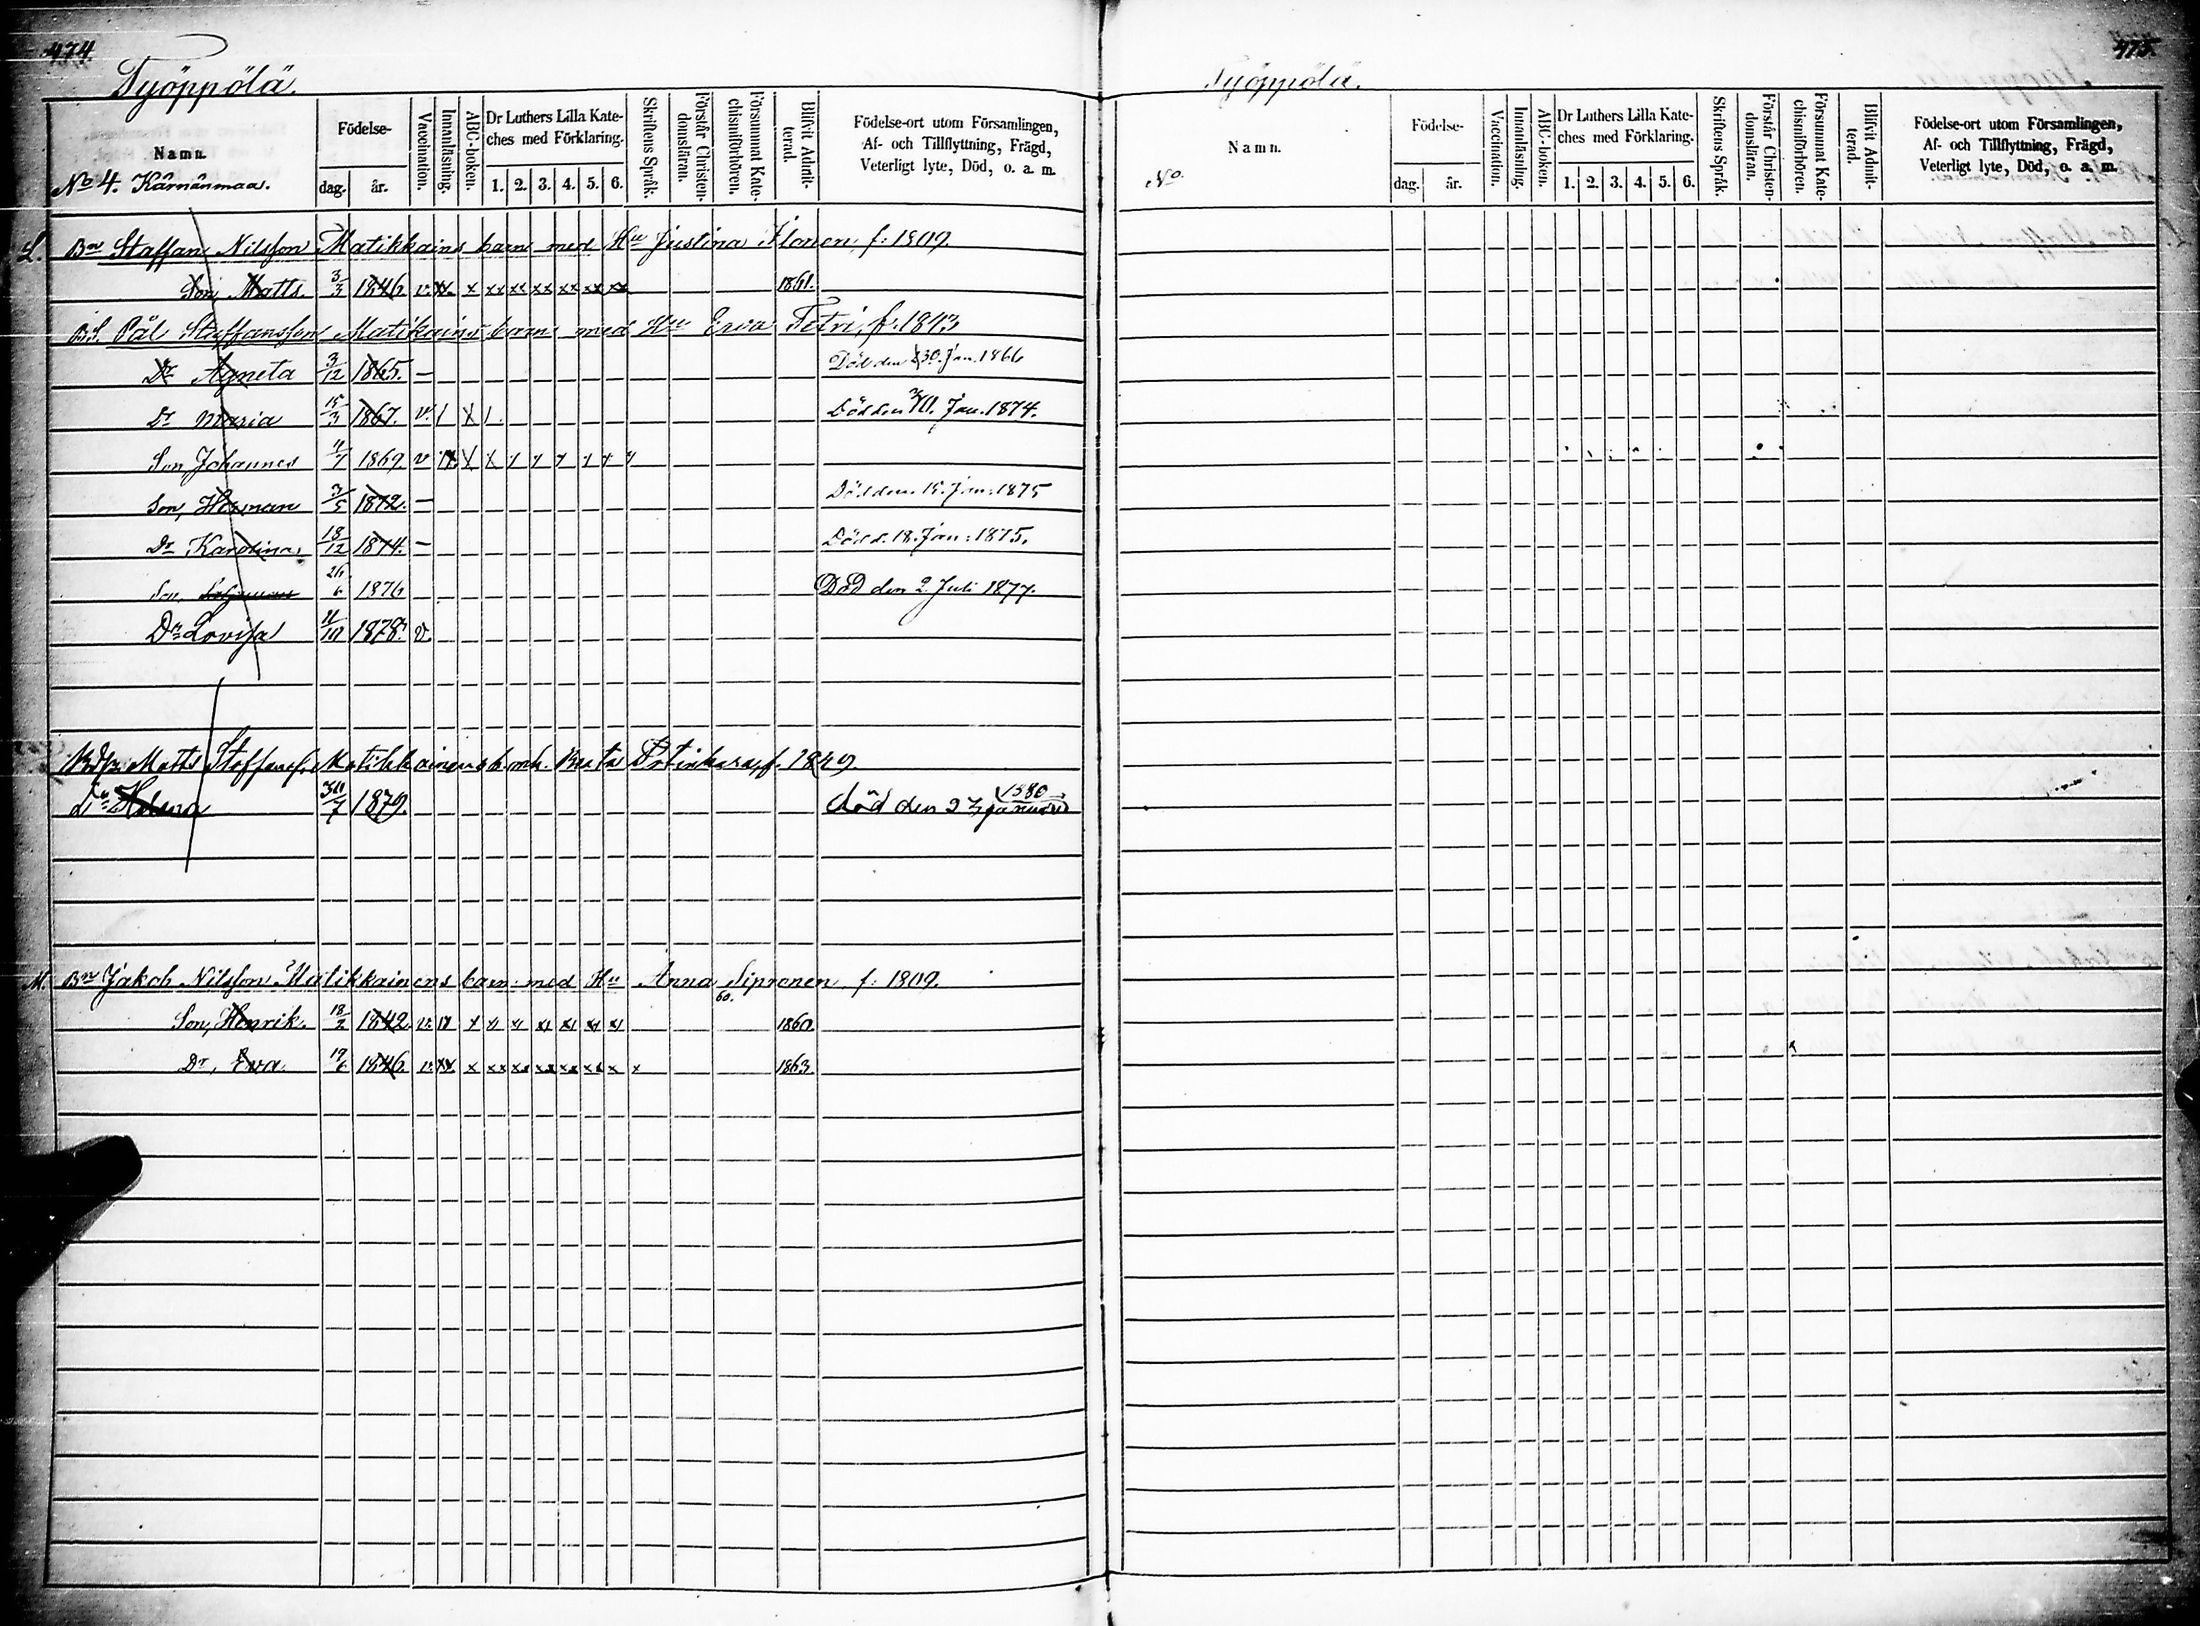 474.
Työppölä.
Namn.
No 4. Kärnänmaa.
Födelse-
dag. år.
Vaccination.
Innanläsning.
ABC-boken.
Dr Luthers Lilla Kate-
ches med Förklaring.
1. 2. 3. 4. 5. 6.
Skriftens Språk.
Förstår Christen-
domsläran.
Försummat Kate-
chismiförhören.
Blifvit Admit-
terad.
Födelse-ort utom Församlingen,
Af- och Tillflyttning, Frägd,
Veterligt lyte, Död, o. a. m.
L. Bn Staffan Nilsson Matikkains barn med Hu Justina Ilonen, f: 1809.
Son, Matts. 3/3 1846. v. xx. x xx xx xx xx xx xx 1861.
BS. Pål Staffansson Matikains barn med Hu Eva Tetri, f. 1843
Dr Agneta 3/12 1865. — Död den 30. Jan. 1866
Dr Maria 15/3 1867. v. Död den Jan. 1874.
Son Johannes 1869 v
Son, Herman 3/5 1872. — Död den 15. Jan. 1875
Dr Karolina, 18/12 1874. — Död d. 18. Jan: 1875.
Son, 26/6 1876 Död den 2 Juli 1877.
Dr Lovisa 11/10 1878. v.
Matts Staffans. Matikkainens b. m. h. Beata f. 1849
Dr Helena 30/7 1879. död den 27 januari 1880
M. Bn Jakob Nilsson Matikkainens barn med Hu Anna Sipronen, f: 1809.
60.
Son, Henrik. 18/2 1842. v. 1860
Dr, Eva. 19/6 1846. v. xx. x xx xx xx xx xx x x 1863.
475.
Työppölä.
Namn.
No
Födelse-
dag. år.
Vaccination.
Innanläsning.
ABC-boken.
Dr Luthers Lilla Kate-
ches med Förklaring.
1. 2. 3. 4. 5. 6.
Skriftens Språk.
Förstår Christen-
domsläran.
Försummat Kate-
chismiförhören.
Blifvit Admit-
terad.
Födelse-ort utom Församlingen,
Af- och Tillflyttning, Frägd,
Veterligt lyte, Död, o. a. m.